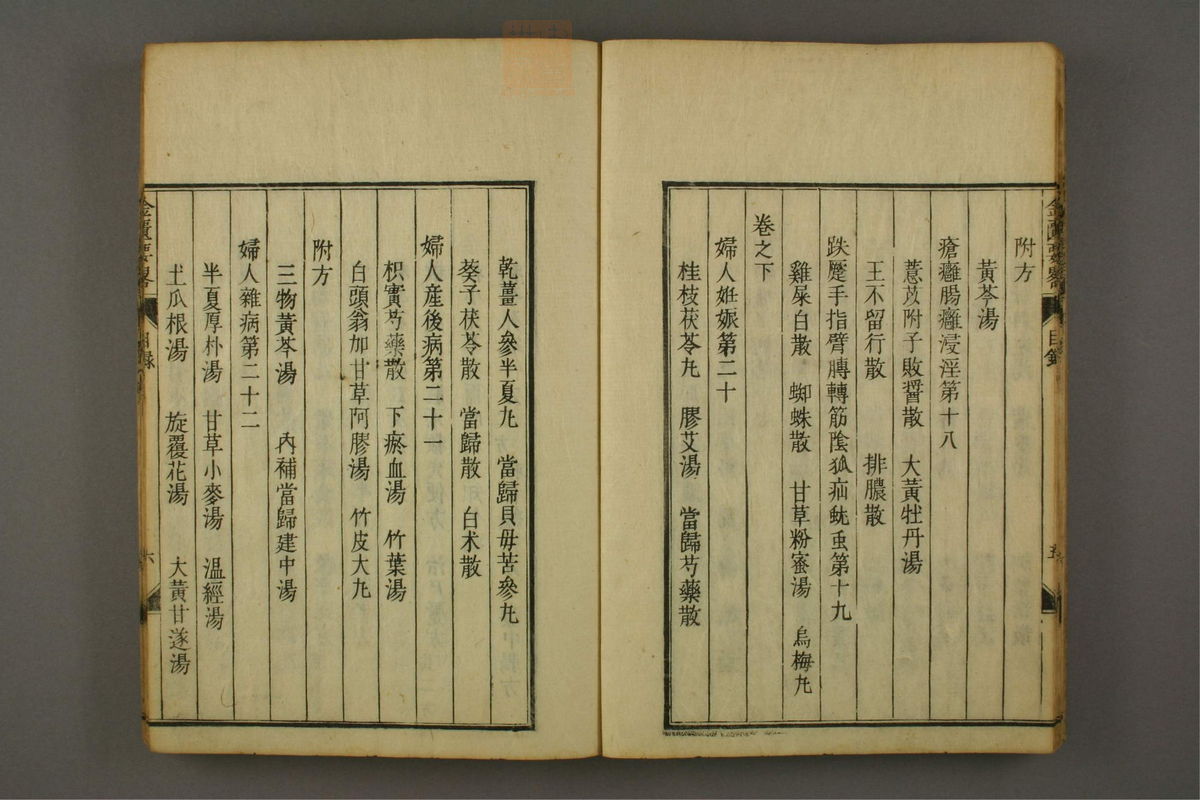 附方
黃芩湯
瘡癰腸癰浸淫第十八
薏苡附子敗醬散 大黃牡丹湯
王不留行散 排膿散
趺蹷手指臂腫轉筋陰狐疝蚘虫第十九
雞屎白散 蜘蛛散 甘草粉蜜湯 烏梅九
卷之下
婦人姙娠第二十
桂枝茯苓九 膠艾湯 當歸芍藥散
乾薑人參半夏九 當歸貝毋苦參九
葵子茯苓散 當歸散 白术散
婦人産後病第二十一
枳實芍藥散 下瘀血湯 竹葉湯
白頭翁加甘草阿膠湯 竹皮大九
附方
三物黃芩湯 內補當歸建中湯
婦人雜病第二十二
半夏厚朴湯 甘草小麥湯 溫經湯
土瓜根湯 旋覆花湯 大黃甘遂湯
目錄 六